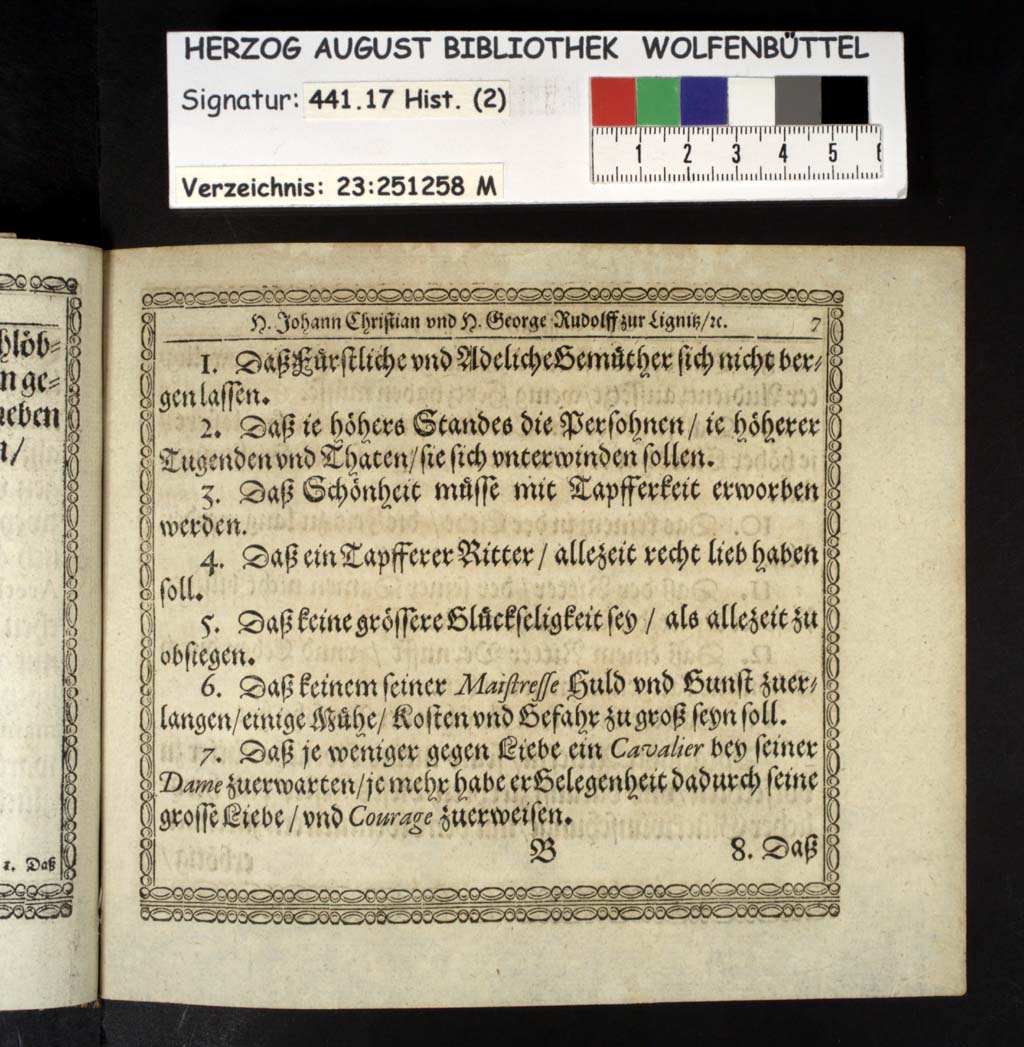 HERZOG AUGUST BIBLIOTHEK WOLFENBÜTTEL
Signatur: 441.17 Hist. (2)
Verzeichnis: 23:251258 M
1 2 3 4 5 6
hlöb⸗
n ge⸗
neben
n/
2. Daß
H. Johann Christian vnd H. George Rudolff zur Lignitz/ꝛc. 7
1. Daß Fürstliche vnd Adeliche Gemüther sich nicht ber⸗
gen lassen.
2. Daß ie höhers Standes die Persohnen / ie höherer
Tugenden vnd Thaten/ sie sich vnterwinden sollen.
3. Daß Schönheit müsse mit Tapfferkeit erworben
werden.
4. Daß ein Tapfferer Ritter / allezeit recht lieb haben
soll.
5. Daß keine grössere Glückseligkeit sey / als allezeit zu
obsiegen.
6. Daß keinem seiner Maistresse Huld vnd Gunst zuer⸗
langen/ einige Mühe/ Kosten vnd Gefahr zu groß seyn soll.
7. Daß je weniger gegen Liebe ein Cavalier bey seiner
Dame zuerwarten/ je mehr habe er Gelegenheit dadurch seine
grosse Liebe / vnd Courage zuerweisen.
B 8. Daß